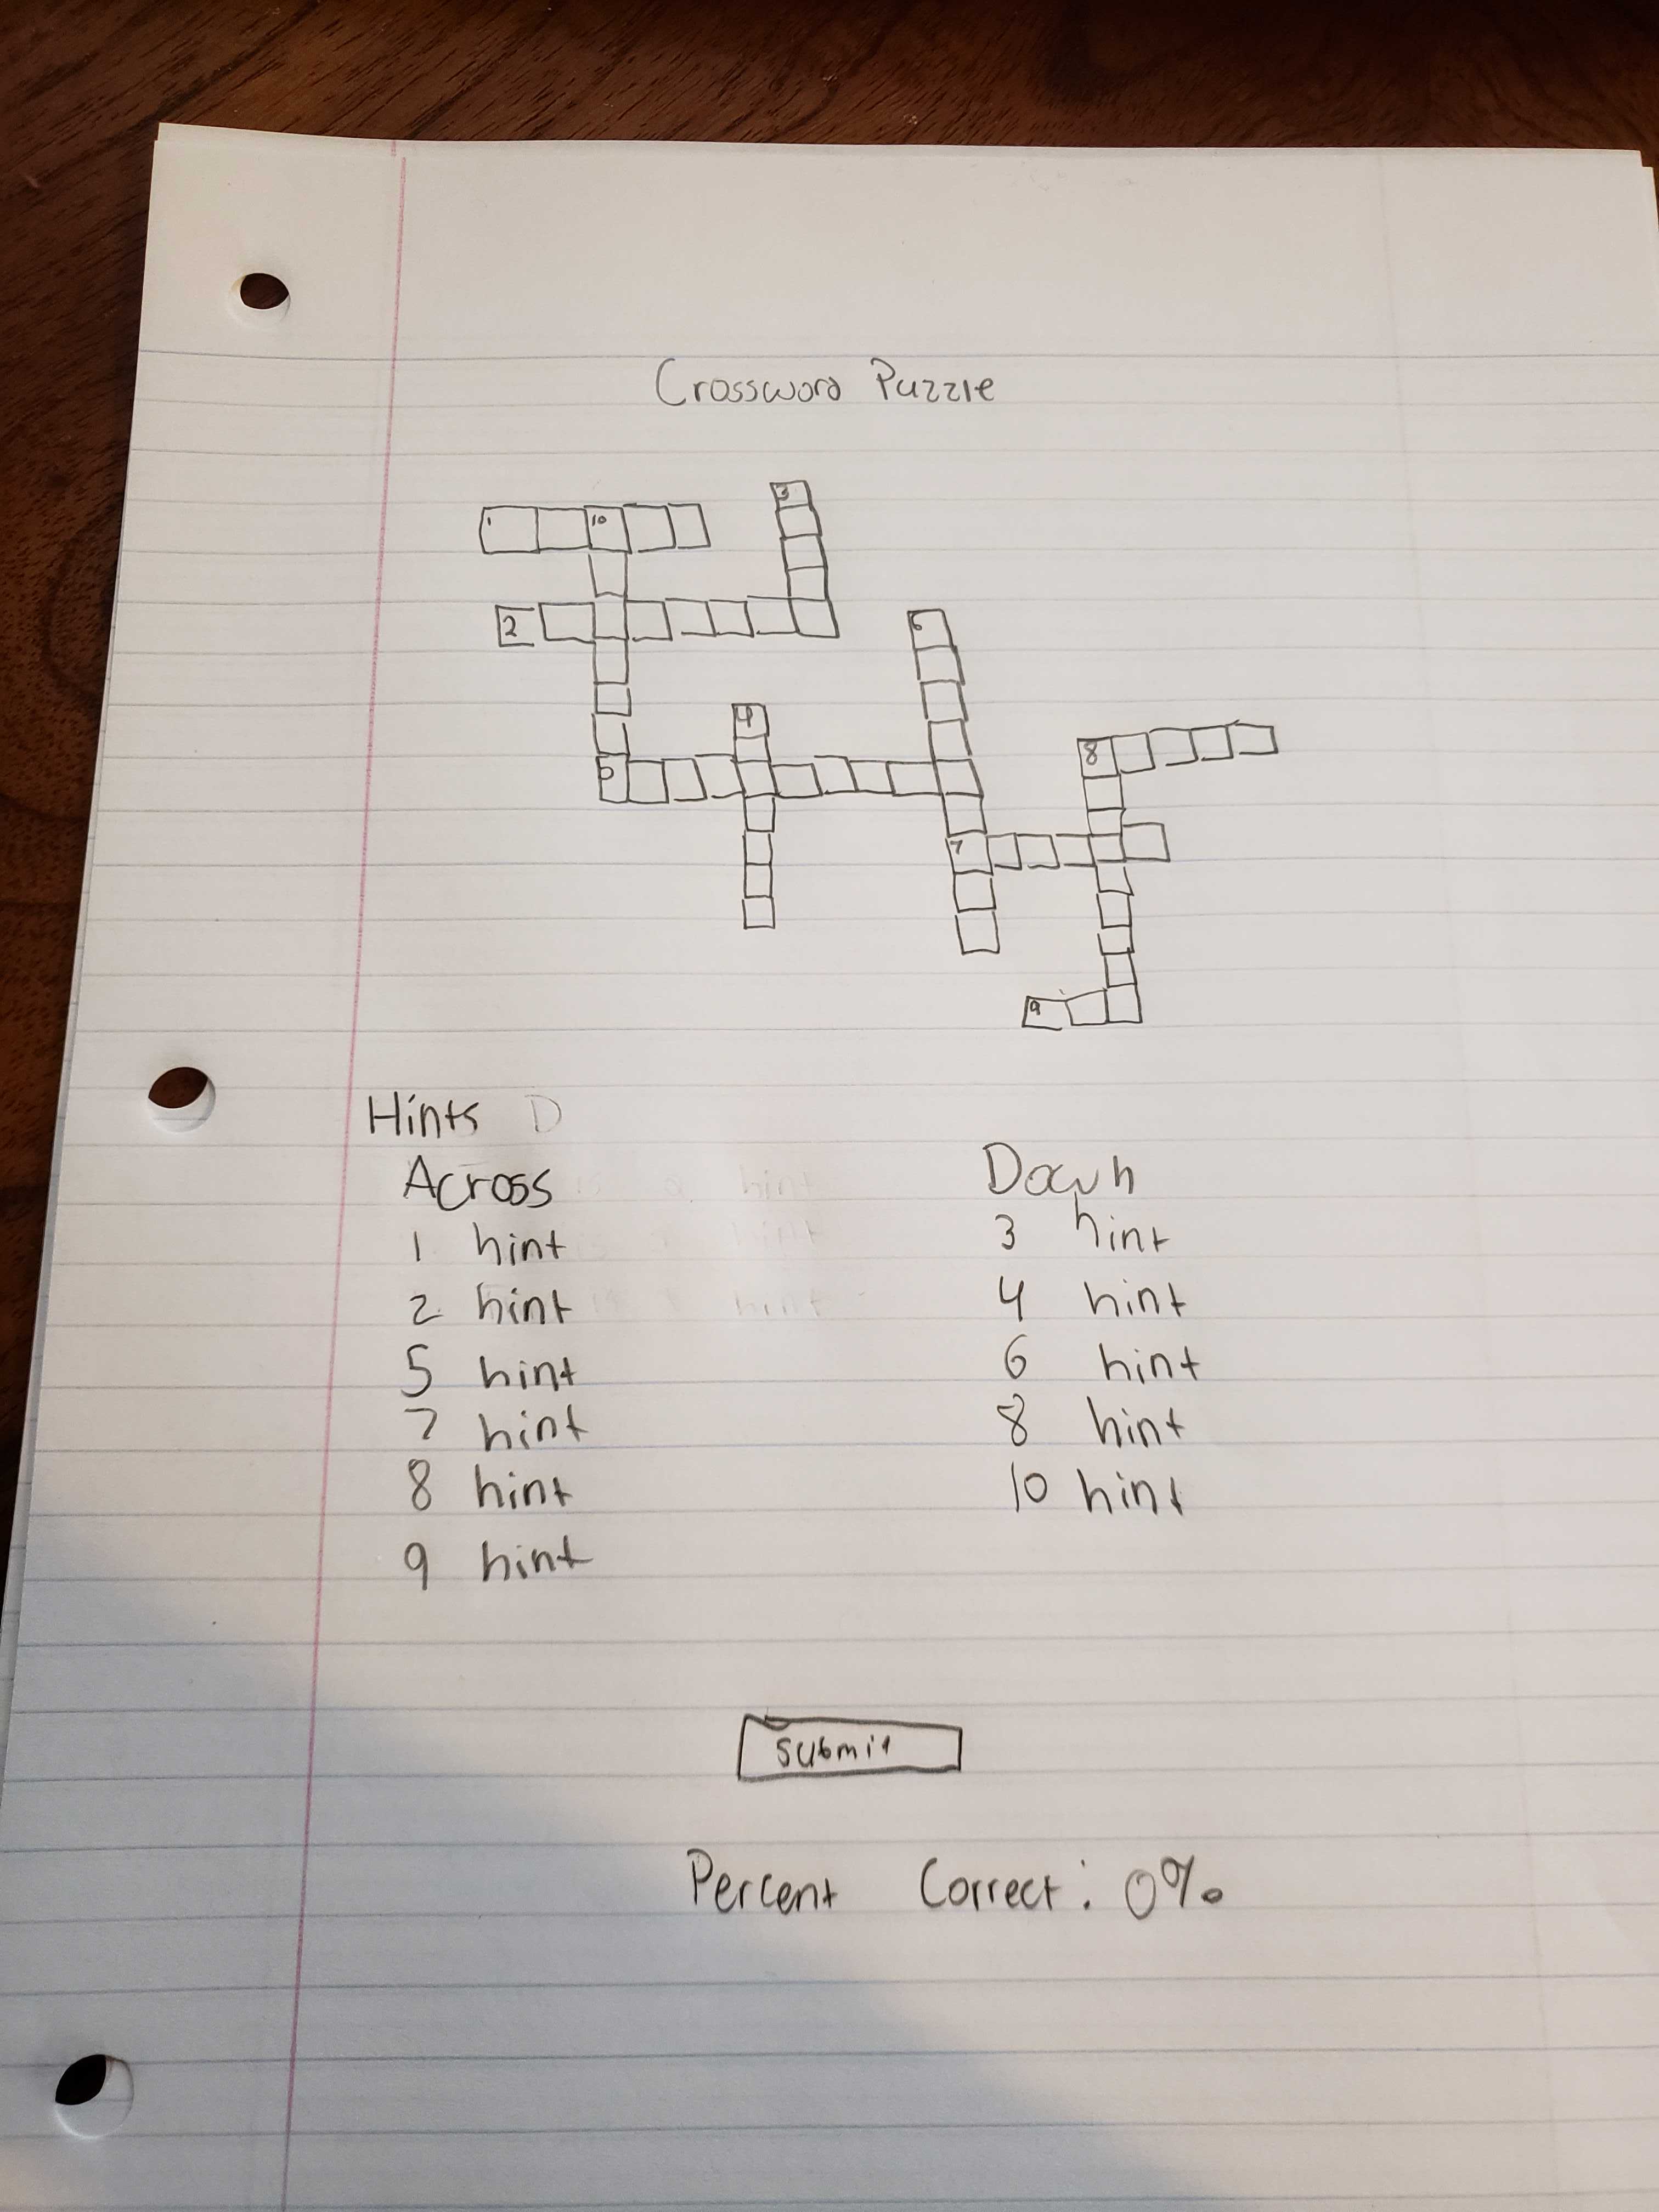 Crossword Puzzle
3
1 10
2
6
4
8
5
7
9
Hints D
Across
1 hint
2 hint
5 hint
7 hint
8 hint
9 hint
Down
3 hint
4 hint
6 hint
8 hint
10 hint
Submit
Percent Correct: 0%